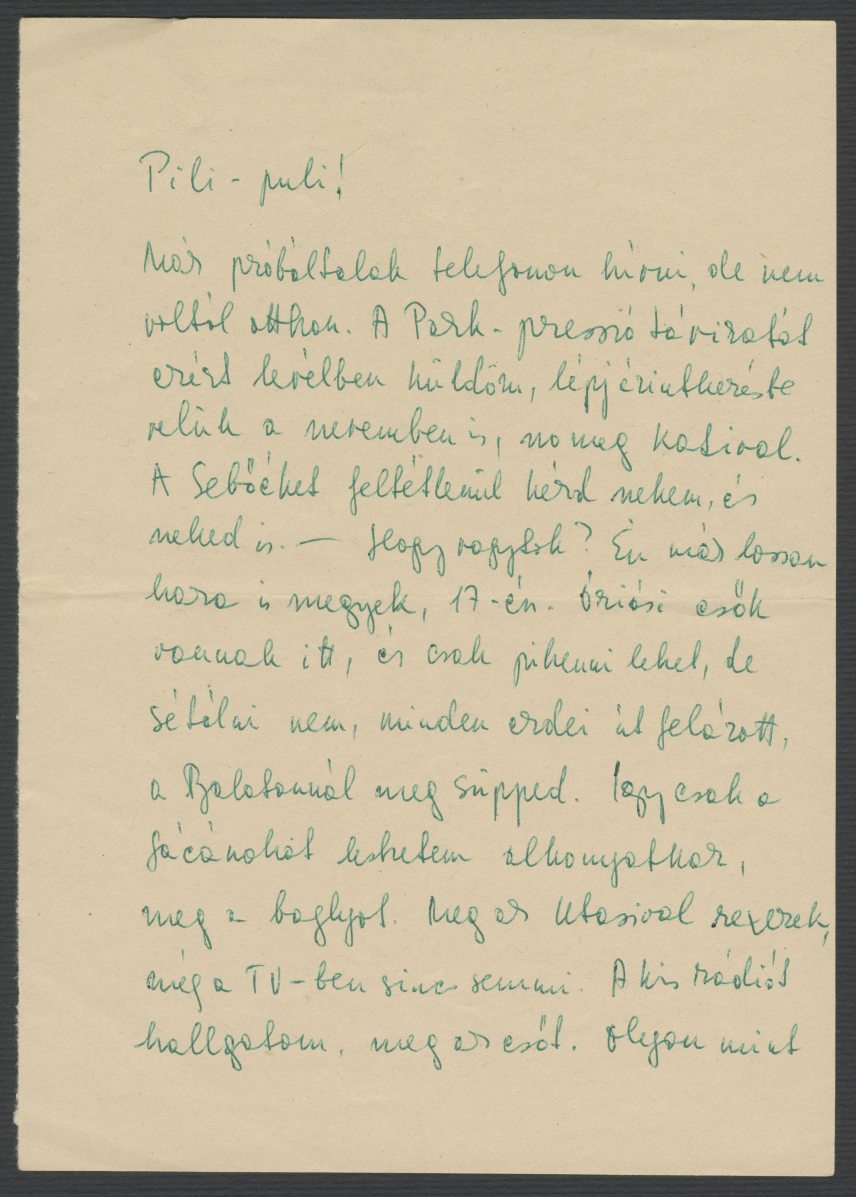 Pili - puli!
Már próbáltalak telefonon hívni, de nem
voltál otthon. A Park-presszó táviratát
ezért levélben küldöm, lépj érintkezésbe
velük a nevemben is, no meg Katival.
A Sebőéket feltétlenül kérd nekem, és
neked is. — Hogy vagytok? Én már lassan
haza is megyek, 17-én. Óriási esők
vannak itt, és csak pihenni lehet, de
sétálni nem, minden erdei út felázott,
a Balatonnál meg süpped. Így csak a
fácánokat leshetem alkonyatkor,
meg a baglyot. Meg az Utasival rexezek,
még a TV-ben sincs semmi. A kis rádiót
hallgatom, meg az esőt. Olyan mint